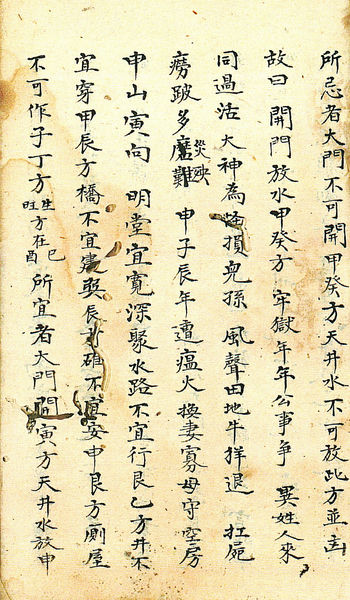 所忌者大門不可開甲癸方天井水不可放此方並主
故曰　開門放水甲癸方　牢獄年年公事爭　異姓人來
同過活　大神為禍損兒孫　風聲田地牛羊退　扛屍
癆跛多磨難災殃　申子辰年遭瘟火　換妻寡母守空房
申山寅向　明堂宜寬深聚水路不宜行艮乙方井不
宜穿甲辰方橋不宜建巽辰方碓不宜安申艮方廁屋
不可作子丁方生旺方在巳酉所宜者大門開寅方天井水放申